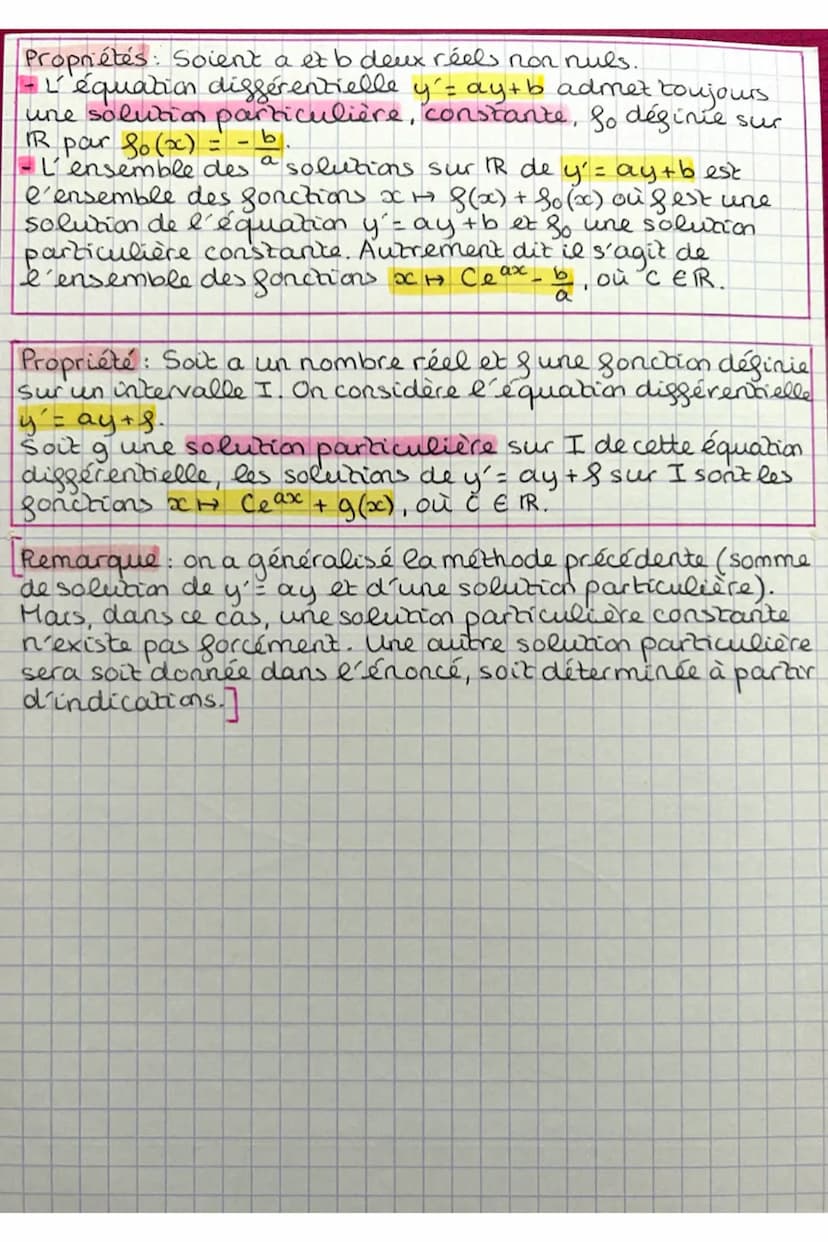 Propriétés : Soient a et b deux réels non nuls.
- L'équation différentielle y' = ay + b admet toujours
une solution particulière, constante, f₀ définie sur
ℝ par f₀(x) = - b/a.
- L'ensemble des solutions sur ℝ de y' = ay + b est
l'ensemble des fonctions x ↦ f(x) + f₀(x) où f est une
solution de l'équation y' = ay + b et f₀ une solution
particulière constante. Autrement dit il s'agit de
l'ensemble des fonctions x ↦ Ce^(ax) - b/a, où C ∈ ℝ.
Propriété : Soit a un nombre réel et f une fonction définie
sur un intervalle I. On considère l'équation différentielle
y' = ay + f.
Soit g une solution particulière sur I de cette équation
différentielle, les solutions de y' = ay + f sur I sont les
fonctions x ↦ Ce^(ax) + g(x), où C ∈ ℝ.
[Remarque : on a généralisé la méthode précédente (somme
de solution de y' = ay et d'une solution particulière).
Mais, dans ce cas, une solution particulière constante
n'existe pas forcément. Une autre solution particulière
sera soit donnée dans l'énoncé, soit déterminée à partir
d'indications.]